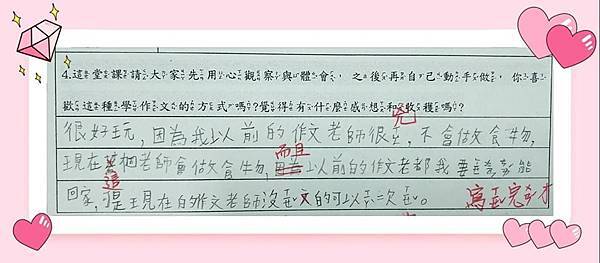 4.這堂課請大家先用心觀察與體會,之後再自己動手做,你喜
歡這種學作文的方式嗎?覺得有什麼感想和收穫嗎?
兇
很好玩,因為我以前的作文老師很,不會做食物,
而且
現在個老師會做食物,以前的作文老都我要能
這
回家,是現在的作文老師沒的可以次。
寫完才